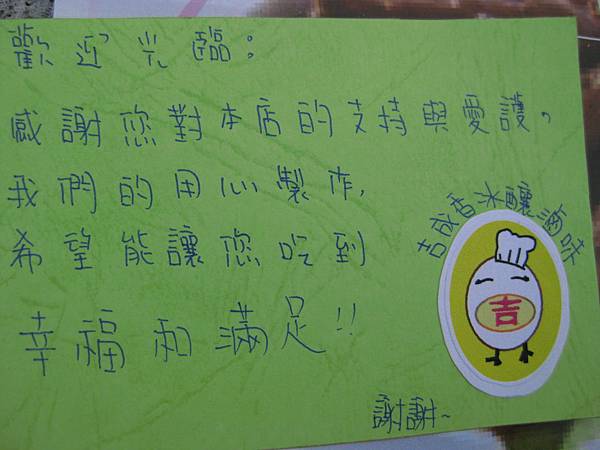 歡迎光臨:
感謝您對本店的支持與愛護,
我們的用心製作,
希望能讓您吃到
幸福和滿足!!
吉成香冰釀滷味
吉
謝謝~